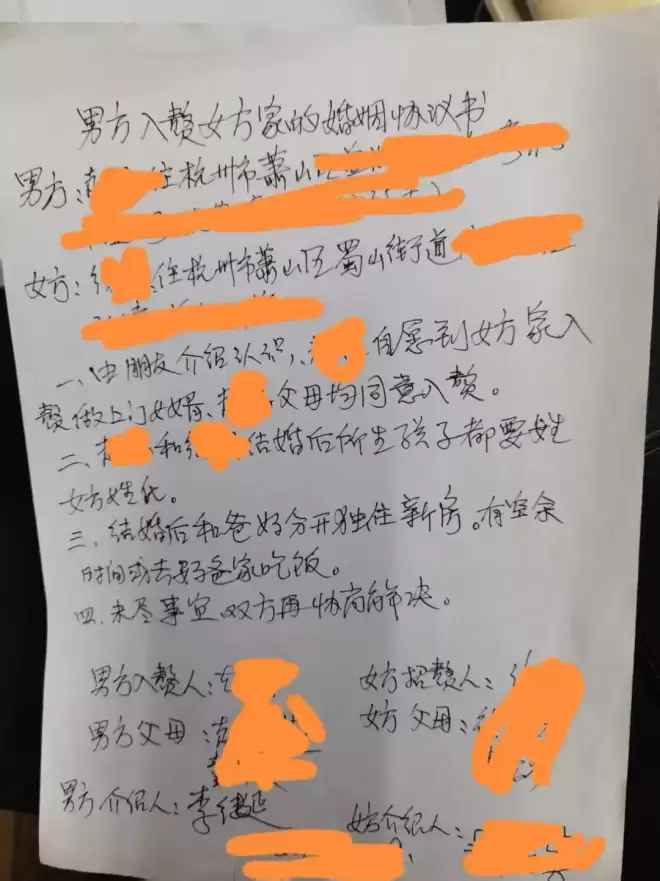 男方入赘女方家的婚姻协议书
男方: 住杭州市萧山区
女方: 住杭州市萧山区蜀山街道
一、由朋友介绍认识, 自愿到女方家入
赘做上门女婿、 父母均同意入赘。
二、 和 结婚后所生孩子都要姓
女方姓氏。
三、结婚后和爸妈分开独住新房。有空余
时间或去爸家吃饭。
四、未尽事宜双方再协商解决。
男方入赘人: 女方招赘人:
男方父母: 女方父母:
男方介绍人: 李继延 女方介绍人: